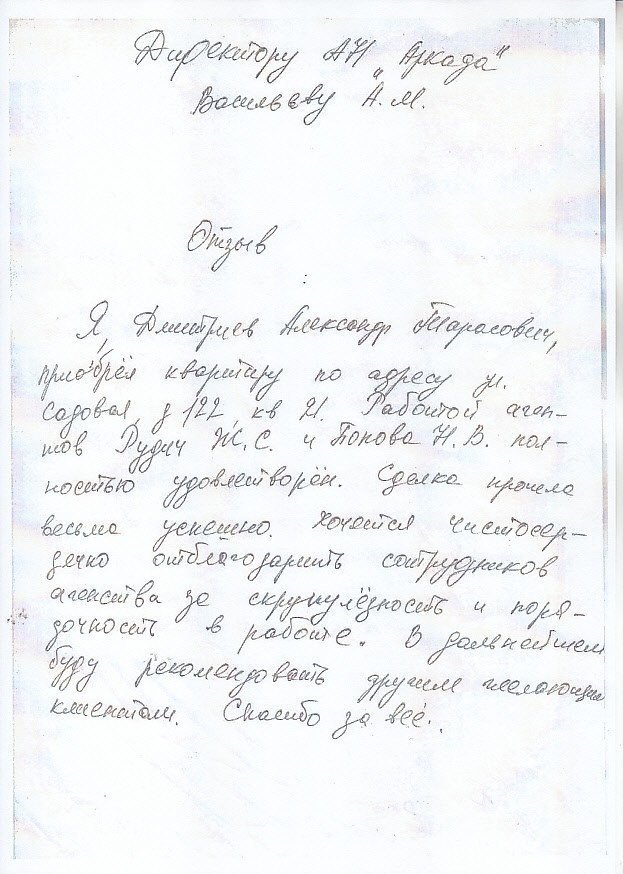 Директору АН „Аркада"
Васильеву А.М.
Отзыв
Я, Дмитриев Александр Тарасович,
приобрёл квартиру по адресу ул.
Садовая д 122 кв 21. Работой аген-
тов Рудич Ж.С. и Попова Н.В. пол-
ностью удовлетворён. Сделка прошла
весьма успешно. Хочется чистосер-
дечно отблагодарить сотрудников
агенства за скрупулёзность и поря-
дочность в работе. В дальнейшем
буду рекомендовать другим желающим
клиентам. Спасибо за всё.